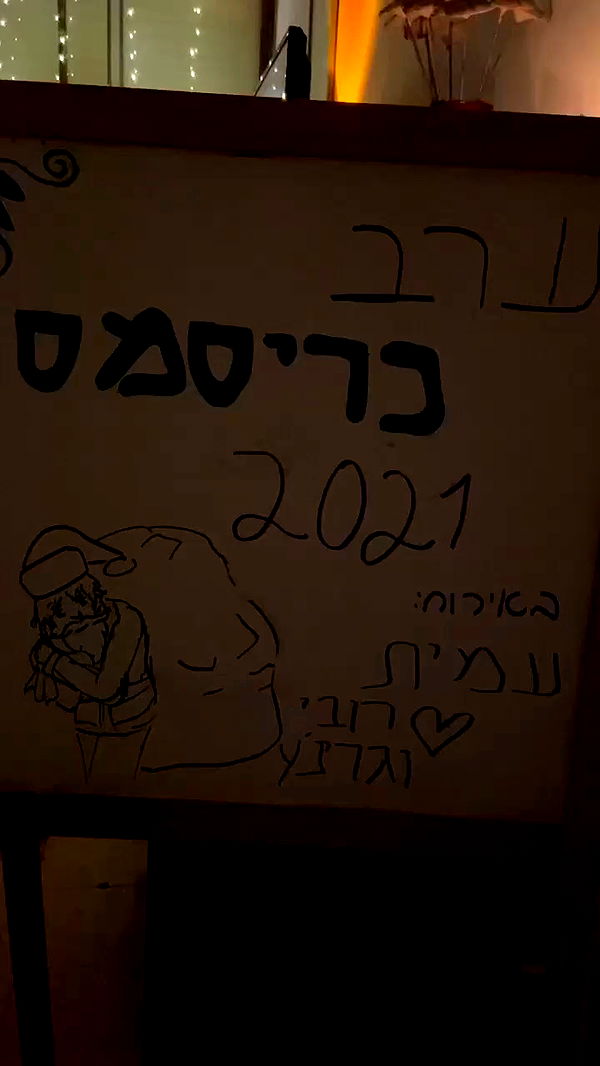 ערב
כריסמס
2021
באירוח:
עמית
רובי
וגרינץ